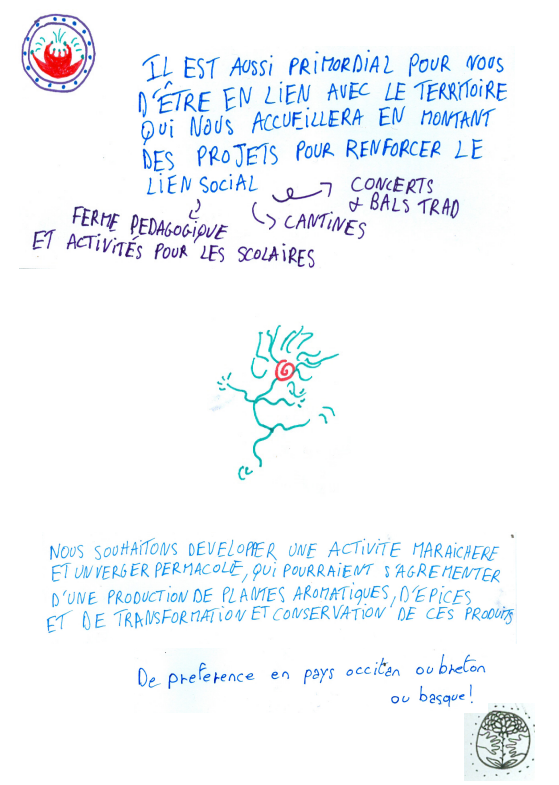 IL EST AUSSI PRIMORDIAL POUR NOUS
D'ÊTRE EN LIEN AVEC LE TERRITOIRE
QUI NOUS ACCUEILLERA EN MONTANT
DES PROJETS POUR RENFORCER LE
LIEN SOCIAL
CONCERTS
& BALS TRAD
CANTINES
FERME PEDAGOGIQUE
ET ACTIVITÉS POUR LES SCOLAIRES
NOUS SOUHAITONS DEVELOPPER UNE ACTIVITE MARAICHERE
ET UN VERGER PERMACOLE, QUI POURRAIENT S'AGREMENTER
D'UNE PRODUCTION DE PLANTES AROMATIQUES, D'EPICES
ET DE TRANSFORMATION ET CONSERVATION DE CES PRODUITS
De preference en pays occitan ou breton
ou basque!